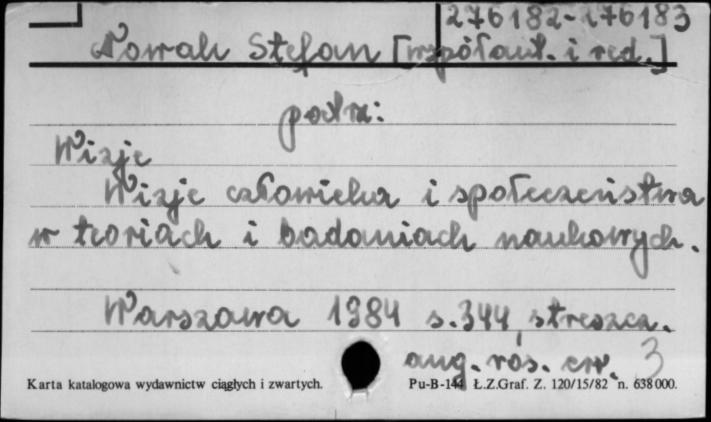 276182-176183
Nowak Stefan [współaut. i red.]
patrz:
Wizje
Wizje człowieka i społeczeństwa
w teoriach i badaniach naukowych.
Warszawa 1984 s.344, streszcz.
ang. ros. 3
Karta katalogowa wydawnictw ciągłych i zwartych. Pu-B-144 Ł.Z.Graf. Z. 120/15/82 n. 638000.